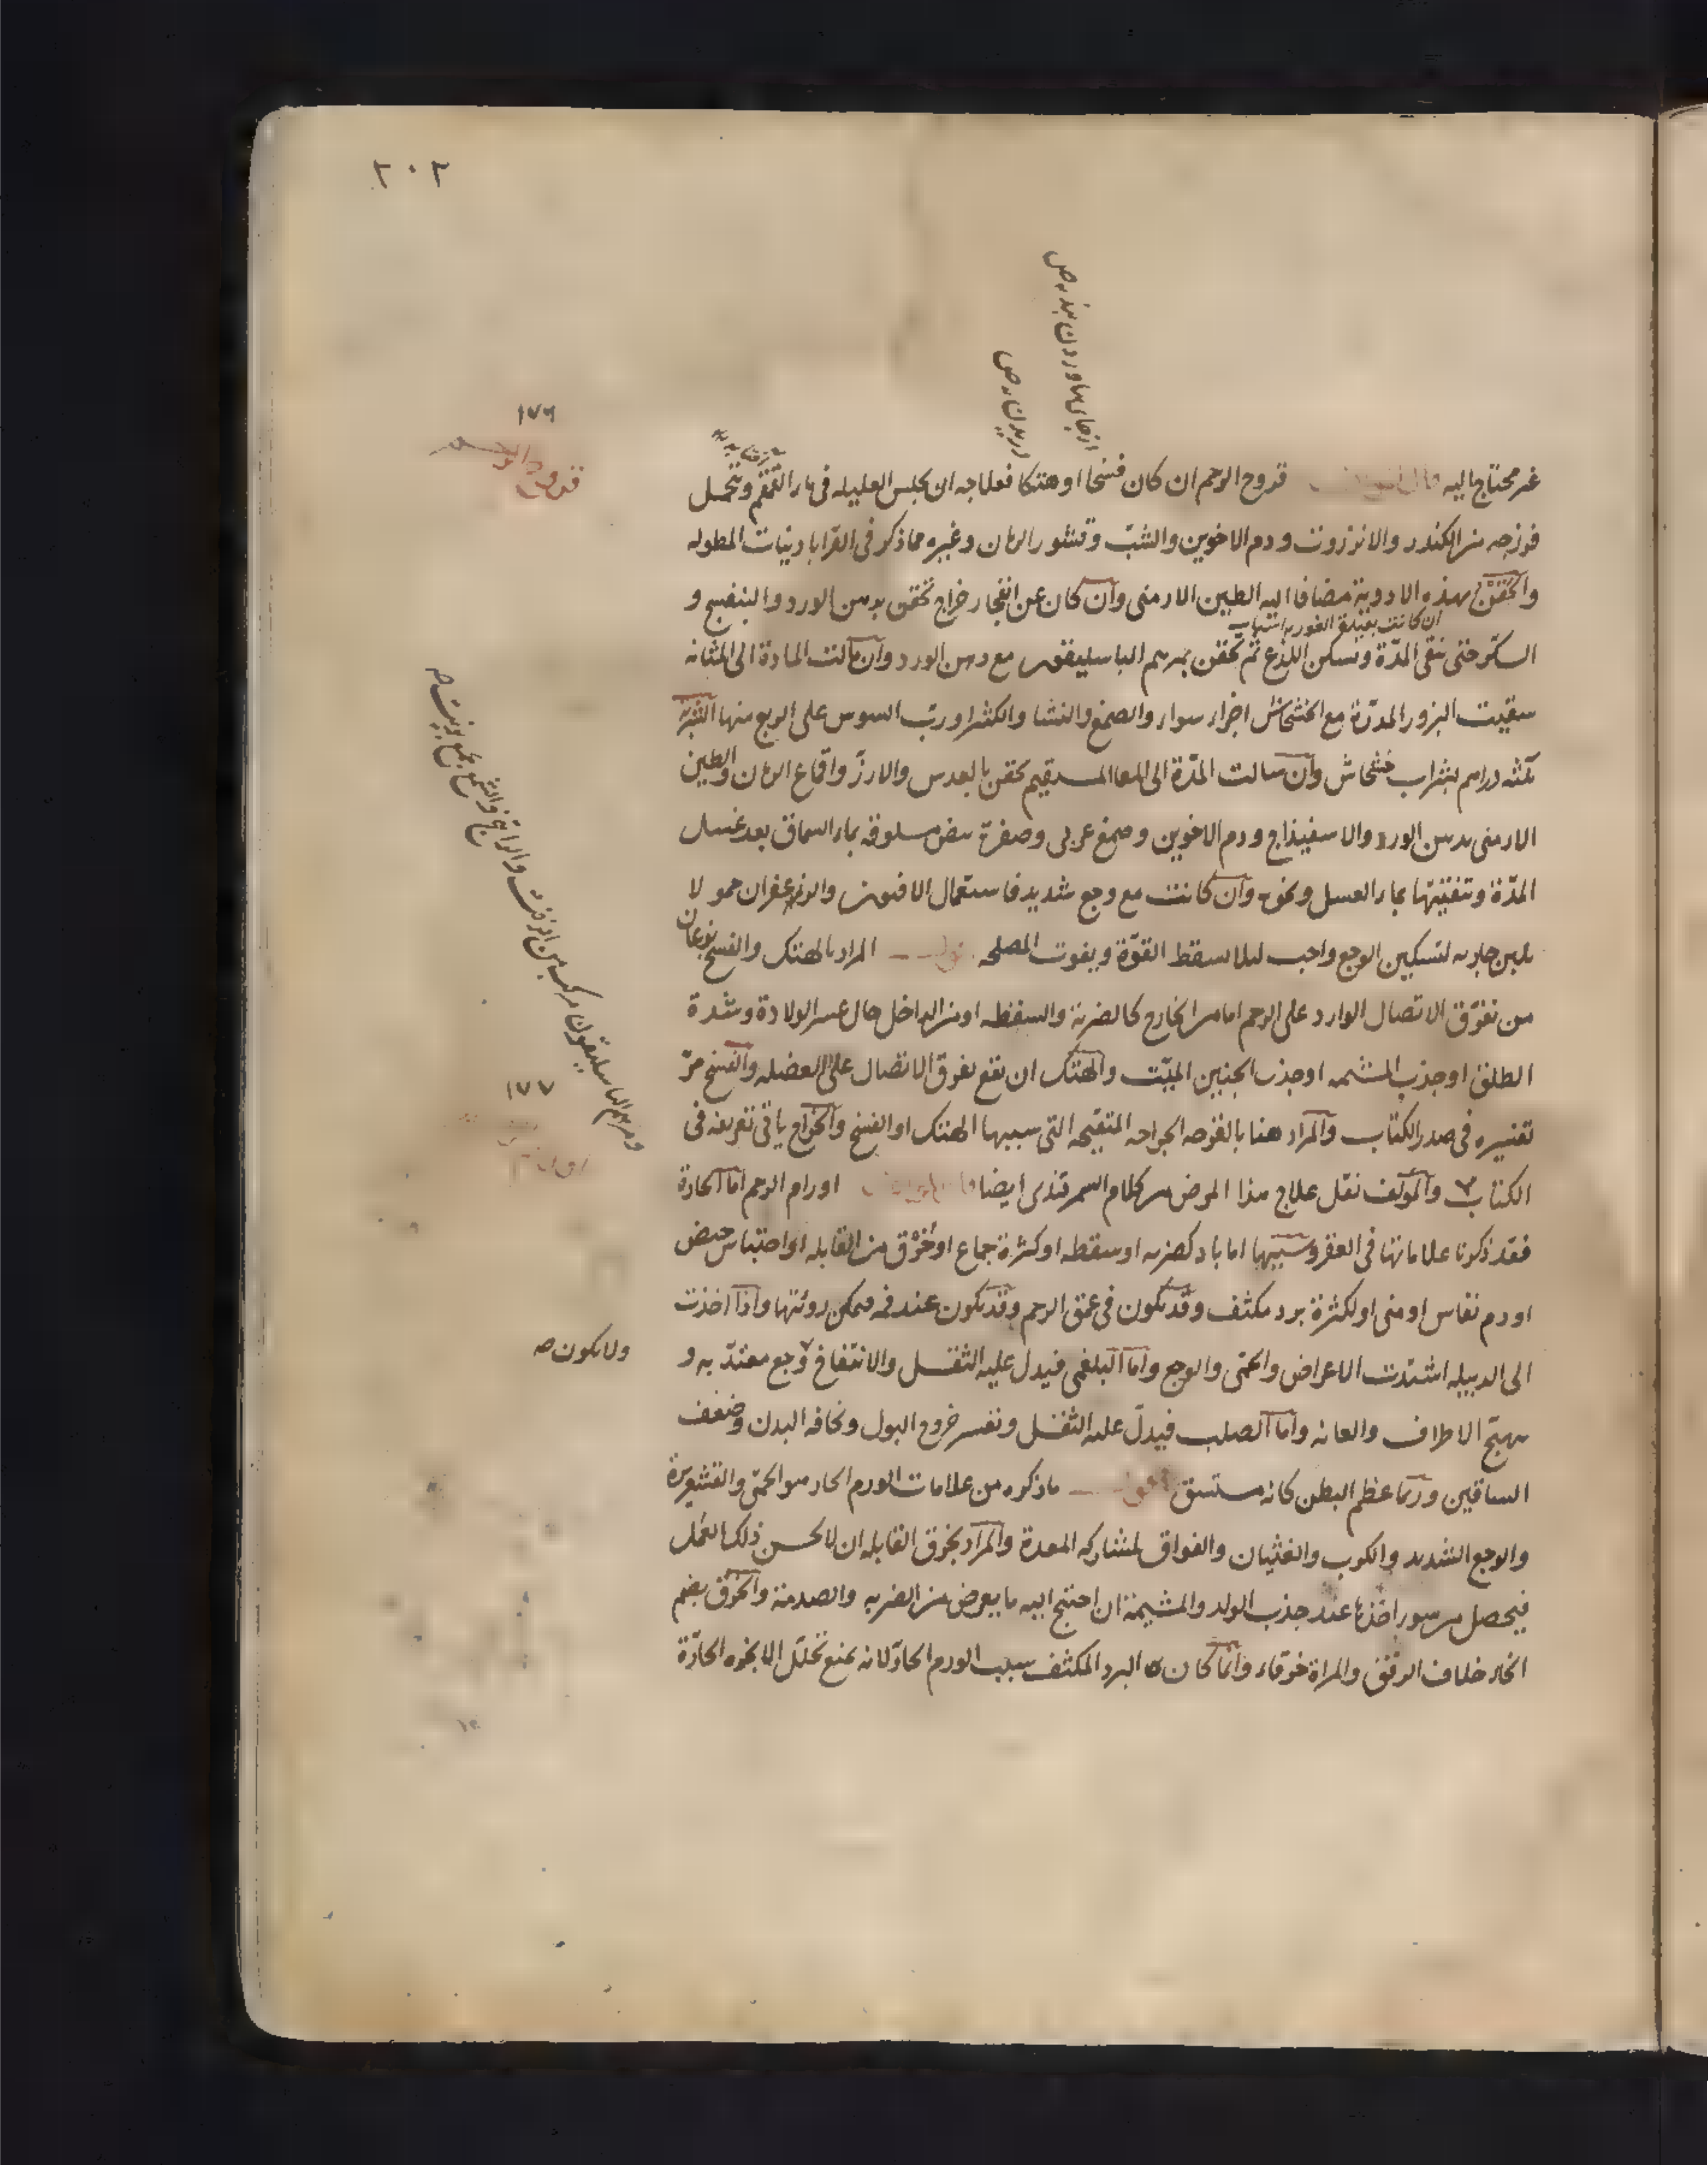 ٢٠٢
١٧٦
قروح الرحم
غير محتاج اليه قال قروح الرحم ان كان فسخا او هتكا فعلاجه ان تجلس العليله فى ماء القمقم وتتحمل
فرزجه من الكندر والانزروت ودم الاخوين والشبّ وقشور الرمان وغيره مما ذكر فى القراباذينات المطوله
والحقن بهذه الادوية مضافا اليه الطين الارمنى وان كان عن انفجار خراج تحقن بدهن الورد والبنفسج و
السكر حتى تنقى المدّة وتسكن اللذع ثم تحقن بمرهم الباسليقون مع دهن الورد وان مالت المادة الى المثانه
سقيت البزور المدرّة مع الخشخاش اجزاء سواء والصمغ والنشا والكثيرا وربّ السوس على الربع منها الشربة
ثلثه دراهم بشراب خشخاش وان سالت المدّة الى المعا المستقيم تحقن بالعدس والارزّ واقماع الرمان والطين
الارمنى بدهن الورد والاسفيذاج ودم الاخوين وصمغ عربى وصفرة بيض مسلوقه بماء السماق بعد غسل
المدّة وتنقيتها بماء العسل ونحوه وان كانت مع وجع شديد فاستعمال الافيون والزعفران حمولا
بلبن جاريه لتسكين الوجع واجب ليلا تسقط القوّة ويفوت المصلحه اقول المراد بالهتك والفسخ نوعان
من تفرّق الاتصال الوارد على الرحم اما من الخارج كالضربة والسقطه او من الداخل حال عسر الولادة وشدة
الطلق او جذب المشيمه او جذب الجنين الميّت والهتك ان تقع تفرق الاتصال على العضله والفسخ مرّ
تفسيره فى صدر الكتاب والمراد هنا بالقرحه الجراحه المتقيّحه التى سببها الهتك او الفسخ والخراج ياتى تعريفه فى
الكتاب والمؤلف نقل علاج هذا المرض من كلام السمرقندى ايضا اورام الرحم اما الحادة
فقد ذكرنا علاماتها فى العقر وسببها اما باد كضربه او سقطه او كثرة جماع او خرق من القابله او احتباس حيض
او دم نفاس او منى او لكثرة برد مكثف وقد تكون فى عمق الرحم وقد تكون عند فمه فيمكن رؤيتها واذا اخذت
الى الدبيله اشتدّت الاعراض والحمّى والوجع واما البلغمى فيدل عليه الثقل والانتفاخ وجع معتدّ به و
ولا يكون صه
تهبّج الاطراف والعانه واما الصلب فيدلّ عليه الثقل وتعسر خروج البول ونحافه البدن وضعف
الساقين وربما عظم البطن كانه مستسق اقول ما ذكره من علامات الورم الحار هو الحمّى والقشعريرة
والوجع الشديد والكرب والغثيان والفواق لمشاركه المعدة والمراد بخرق القابله ان لا تحسن ذلك العمل
فيحصل من سوء اخذها عند جذب الولد والمشيمة ان احتيج اليه ما يعرض من الضربه والصدمة والخرق بضم
الخاء خلاف الرفق والمراة خرقاء وانما كان البرد المكثف سبب الورم الحادّ لانه يمنع تحلّل الابخره الحادّة
ومرهم الباسليقون مركب من الزفت والراتينج والشمع بزيت صه
١٧٧